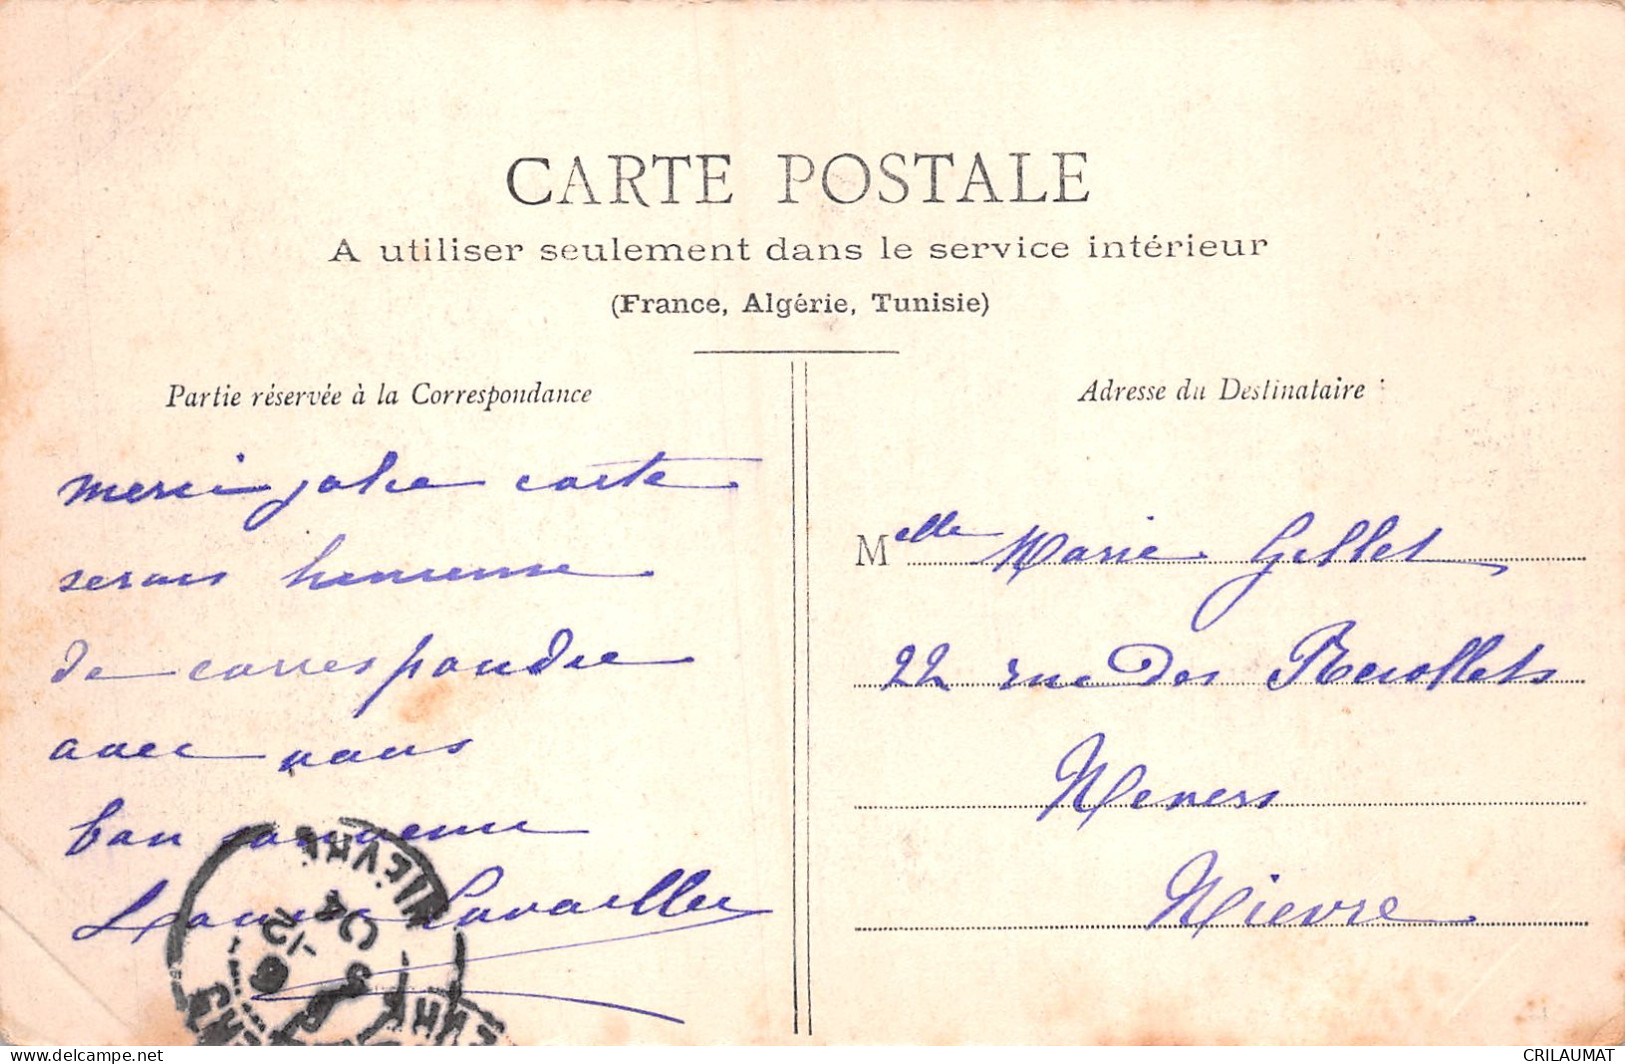 CARTE POSTALE
A utiliser seulement dans le service intérieur
(France, Algérie, Tunisie)
Partie réservée à la Correspondance
merci jolie carte
serais heureuse
de correspondre
avec vous
bon souvenir
Louise Lavaillee
Adresse du Destinataire :
Melle Marie Gillet
22 rue des Recollets
Nevers
Nièvre
NIÈVRE
CRILAUMAT